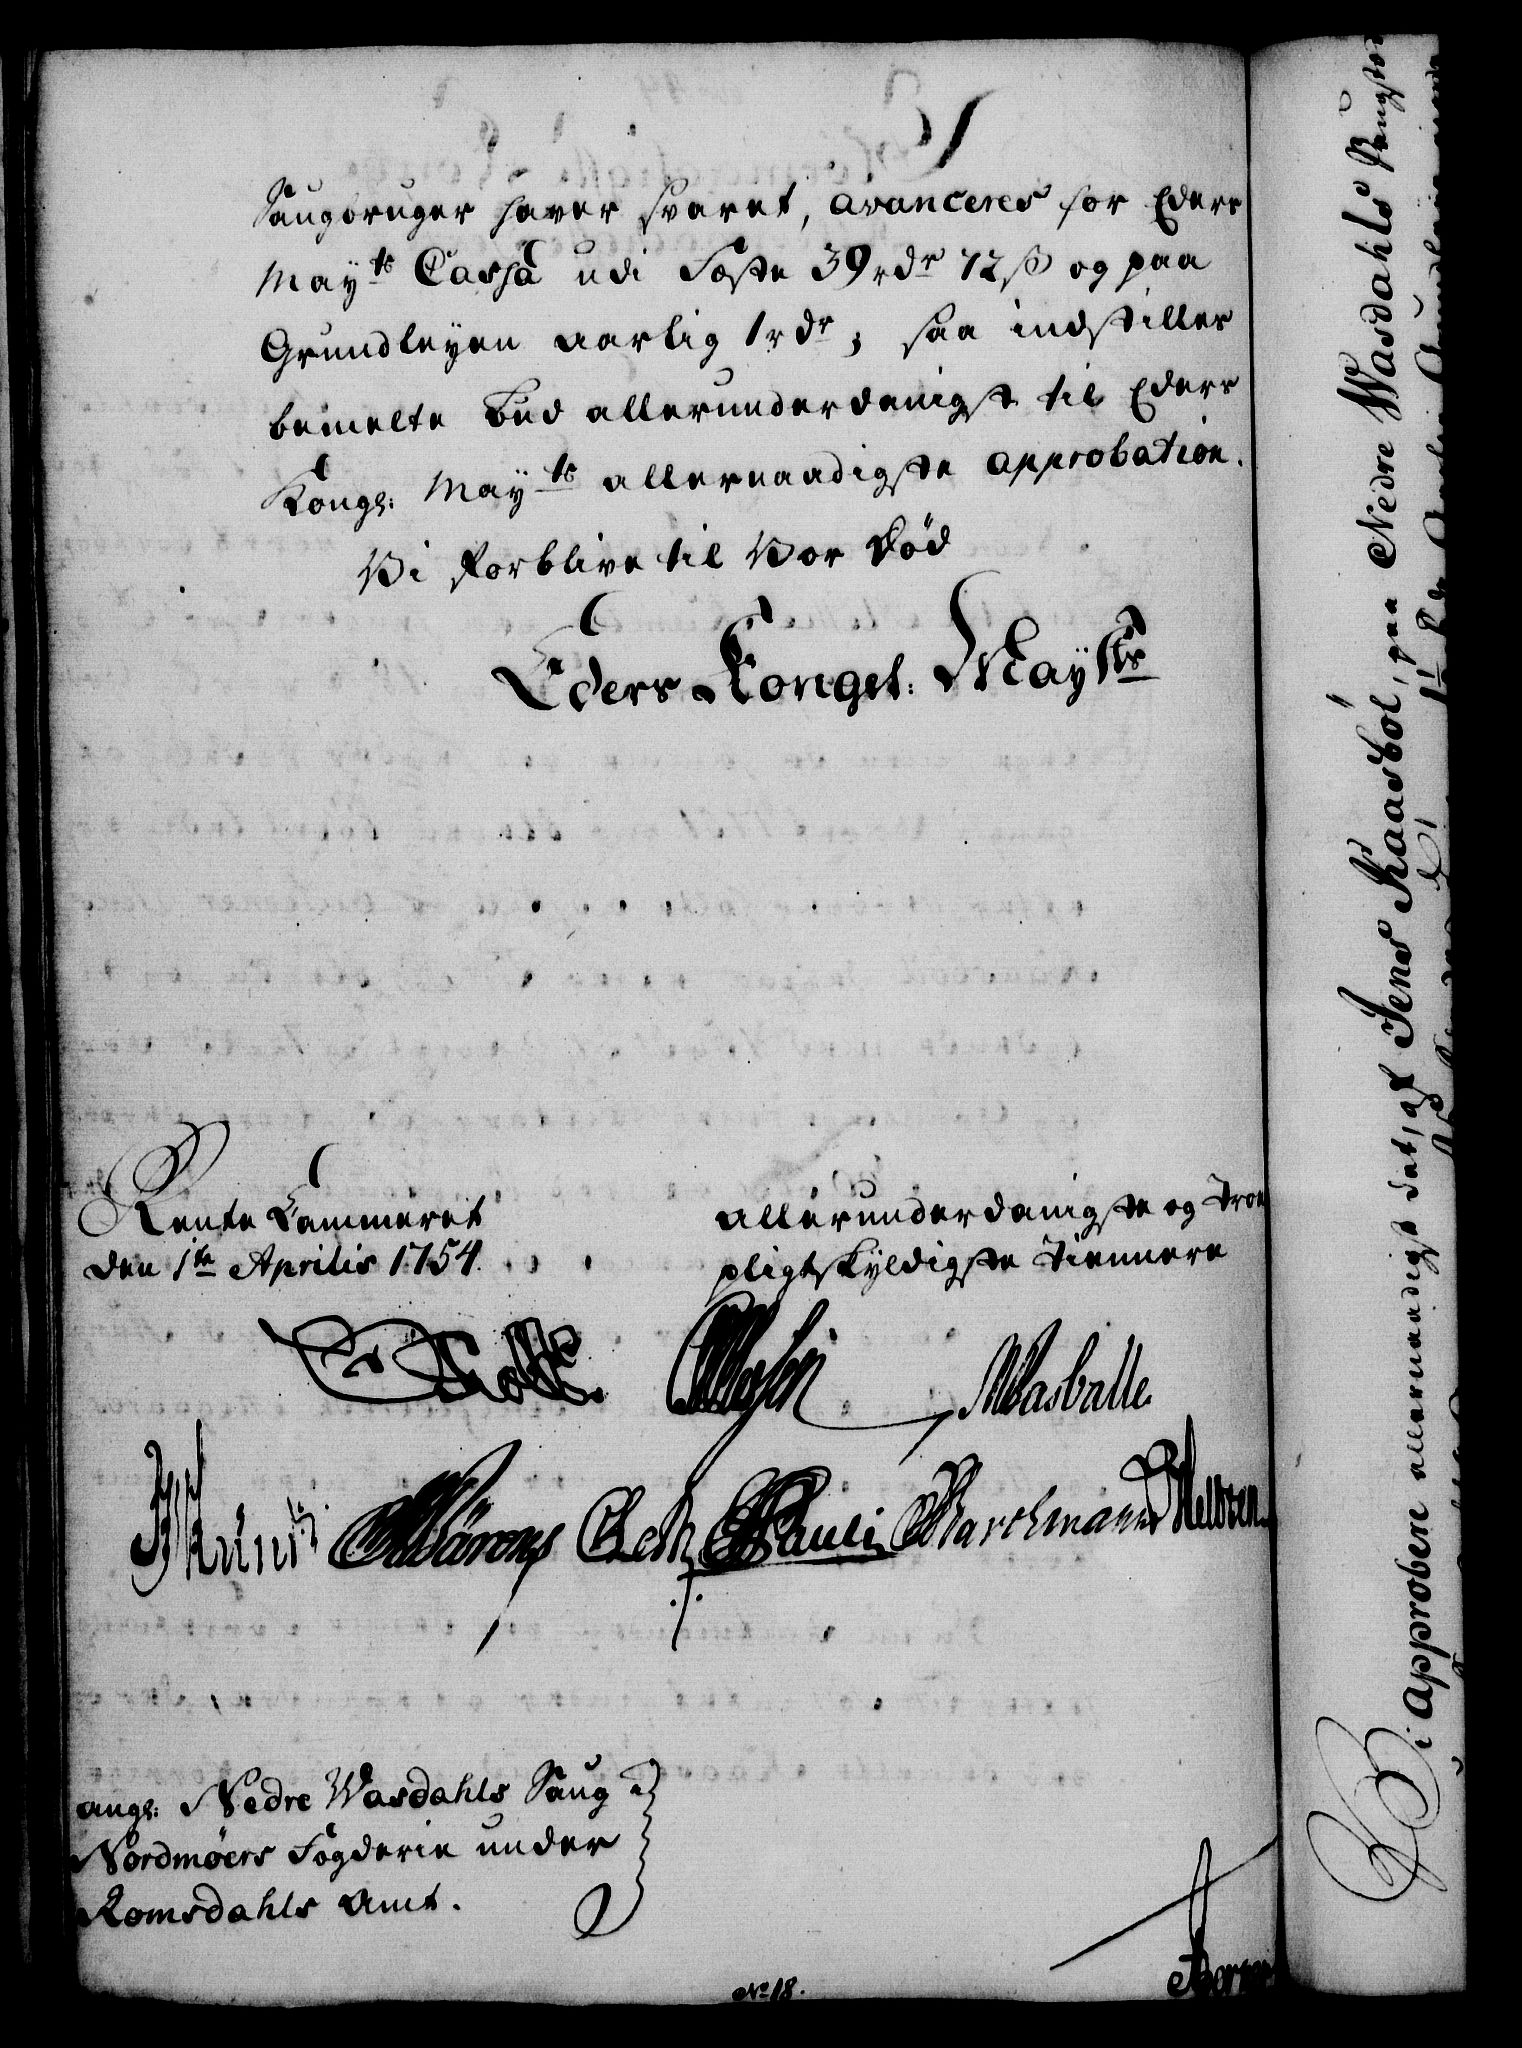 Saugbruger haver svaret, avanceres for Eders
May.ts Cassa udi Fæste 39 rdr 72 ß og paa
Grundleyen aarlig 1 rdr; saa indstilles
bemelte Bud allerunderdanigst til Eders
Kongl: May.ts allernaadigste approbation.
Vi forblive til Vor Død
Eders Kongel: May.ts
Rente Cammeret
den 1te Aprilis 1754.
allerunderdanigste og Troe
pligtskyldigste Tiennere
Holtz.
Wasballe.
Pauli
Barchmann
angl: Nedre Wasdahls Saug i
Nordmøers Fogderie under
Romsdahls Amt.
No 18.
Vi Approbere allernaadigst det, af Jens Kaasbøl, paa Nedre Wasdahls Saugsted